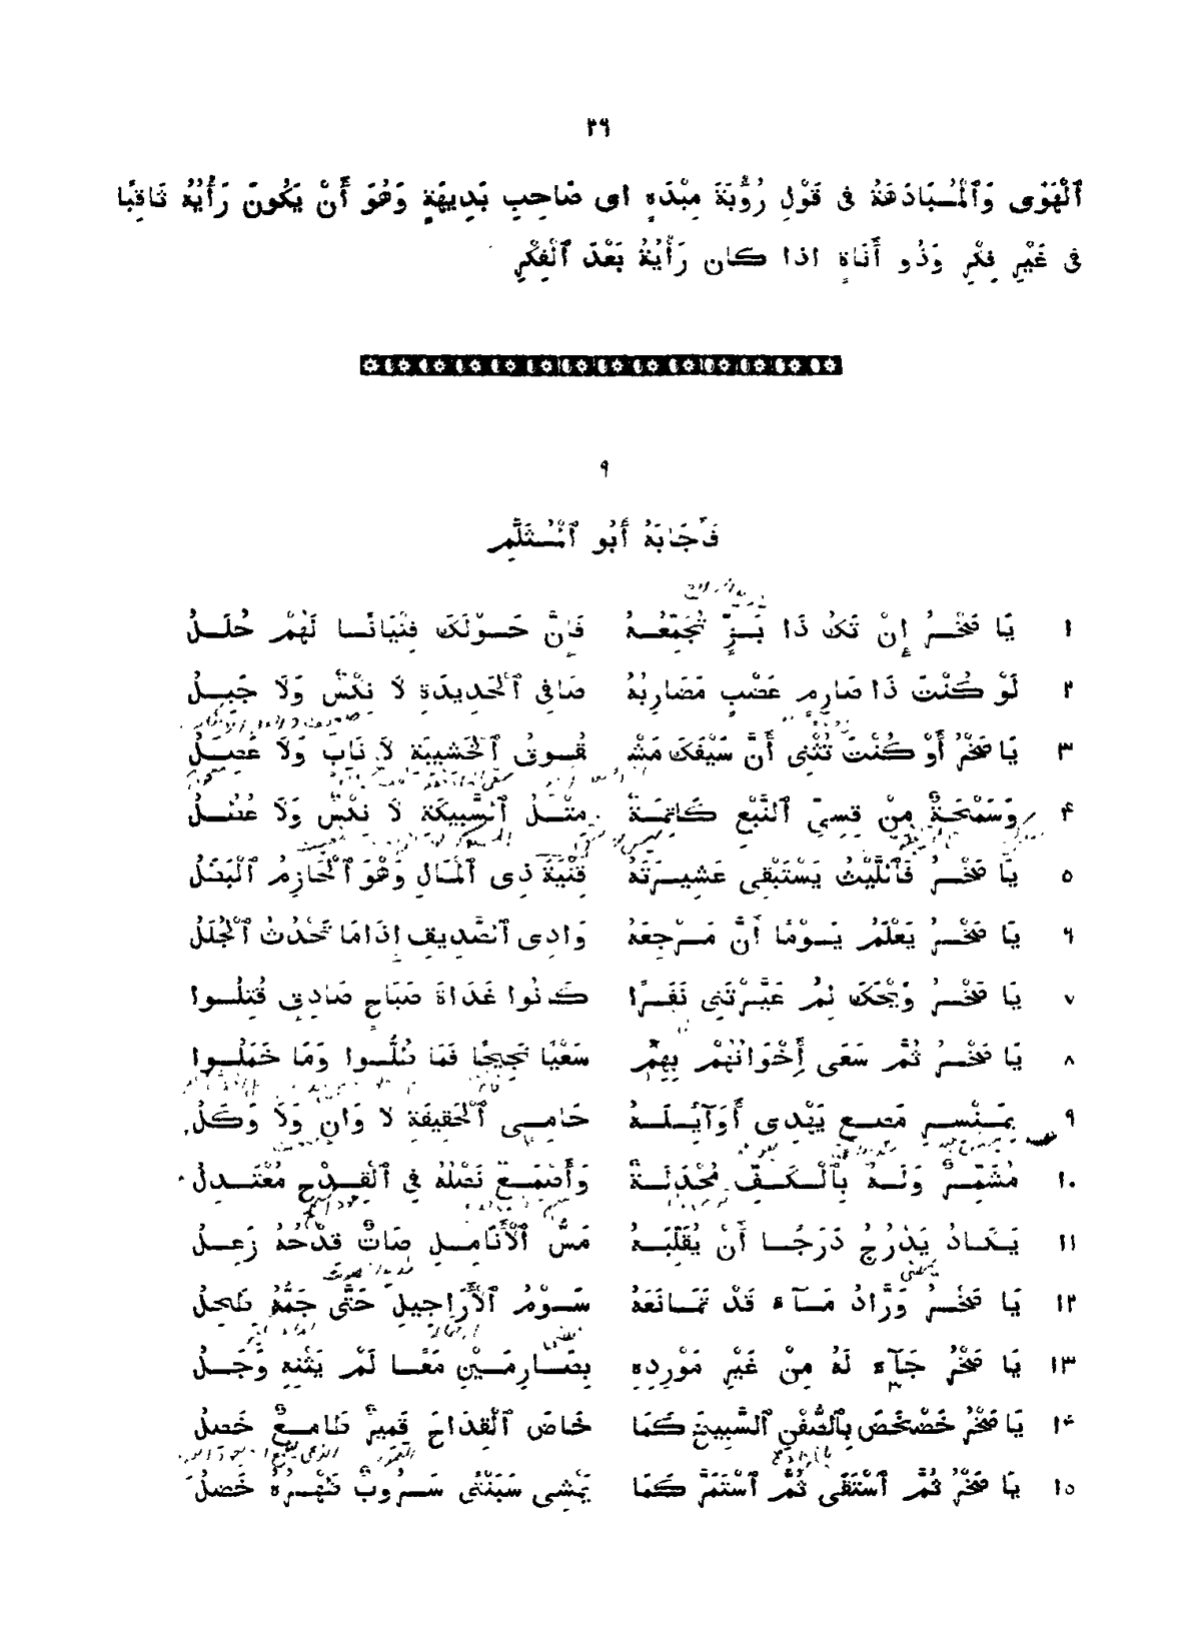 ٢٩
ٱلْهَوَى وَٱلْمُبَادَهَةُ فى قَوْلِ رُؤْبَةَ مِبْدَهِ اى صَاحِبِ بَدِيهَةٍ وَهُوَ أَنْ يَكُونَ رَأْيُهُ ثَاقِبًا
فى غَيْرِ فِكْرٍ وَذُو أَنَاةٍ اذا كان رَأْيُهُ بَعْدَ ٱلْفِكْرِ
٩
فَأَجَابَهُ أَبُو ٱلْمُثَلَّمِ
١ يَا صَخْرُ إِنْ تَكُ ذَا بَزٍّ تُجَمِّعُهُ فَإِنَّ حَوْلَكَ فِتْيَانًا لَهُمْ حُلَلُ
٢ لَوْ كُنْتَ ذَا صَارِمٍ عَضْبٍ مَضَارِبُهُ صَافِى ٱلْحَدِيدَةِ لَا نِكْسٌ وَلَا جَبِلُ
٣ يَا صَخْرُ أَوْ كُنْتَ تُثْنِى أَنَّ سَيْفَكَ مَشْـ ـقُوقُ ٱلْخَشِيبَةِ لَا نَابٍ وَلَا عَصِلُ
۴ وَسَمْحَةٌ مِنْ قِسِىِّ ٱلنَّبْعِ كَاتِمَةٌ مِثْلُ ٱلسَّبِيكَةِ لَا نِكْسٌ وَلَا عُطُلُ
٥ يَا صَخْرُ فَٱللَّيْثُ يَسْتَبْقِى عَشِيرَتَهُ قِنْيَةَ ذِى ٱلْمَالِ وَهْوَ ٱلْحَازِمُ ٱلْبَطَلُ
٦ يَا صَخْرُ يَعْلَمُ يَوْمًا أَنَّ مَرْجِعَهُ وَادِى ٱلصَّدِيقِ إِذَا مَا تَحْدُثُ ٱلْجُلَلُ
٧ يَا صَخْرُ وَيْحَكَ لِمْ عَيَّرْتَنِى نَفَرًا كَانُوا غَدَاةَ صَبَاحٍ صَادِقٍ قُتِلُوا
٨ يَا صَخْرُ ثُمَّ سَعَى إِخْوَانُهُمْ بِهِمْ سَعْيًا نَجِيحًا فَمَا طُلُّوا وَمَا خَمَلُوا
٩ بِمَنْسِرٍ مَصِعٍ يَهْدِى أَوَآئِلَهُ حَامِى ٱلْحَقِيقَةِ لا وَانٍ وَلَا وَكَلُ
١٠ مُشَمِّرٌ وَلَهُ بِٱلْكَفِّ مُحْدَلَةٌ وَأَصْمَعٌ نَصْلُهُ فِى ٱلْقِدْحِ مُعْتَدِلُ
١١ يَكَادُ يَدْرُجُ دَرَجًا أَنْ يُقَلِّبَهُ مَسُّ ٱلْأَنَامِلِ صَاتٌ قِدْحُهُ زَعِلُ
١٢ يَا صَخْرُ وَرَّادُ مَآءٍ قَدْ تَمَانَعَهُ سَوْمُ ٱلْأَرَاجِيلِ حَتَّى جَمُّهُ طَحِلُ
١٣ يَا صَخْرُ جَآءَ لَهُ مِنْ غَيْرِ مَوْرِدِهِ بِصَارِمَيْنِ مَعًا لَمْ يَثْنِهِ وَجَلُ
١۴ يَا صَخْرُ خَضْخَضَ بِٱلصُّفْنِ ٱلسَّبِيخَ كَمَا خَاضَ ٱلْقِدَاحَ قَمِيرٌ طَامِعٌ خَصِلُ
١٥ يَا صَخْرُ ثُمَّ ٱسْتَقَى ثُمَّ ٱسْتَمَرَّ كَمَا يَمْشِى سَبَنْتًى سَرُوبٌ ظَهْرُهُ خَضِلُ